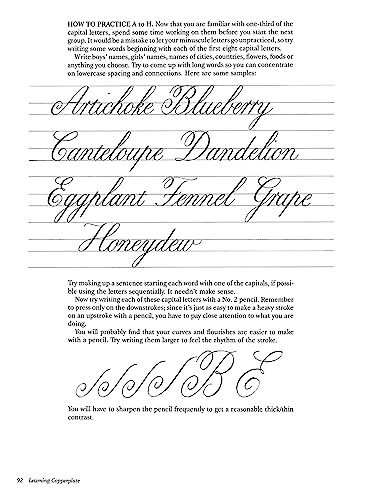 HOW TO PRACTICE A to H. Now that you are familiar with one-third of the
capital letters, spend some time working on them before you start the next
group. It would be a mistake to let your minuscule letters go unpracticed, so try
writing some words beginning with each of the first eight capital letters.
Write boys' names, girls' names, names of cities, countries, flowers, foods or
anything you choose. Try to come up with long words so you can concentrate
on lowercase spacing and connections. Here are some samples:
Artichoke Blueberry
Canteloupe Dandelion
Eggplant Fennel Grape
Honeydew
Try making up a sentence starting each word with one of the capitals, if possi-
ble using the letters sequentially. It needn't make sense.
Now try writing each of these capital letters with a No. 2 pencil. Remember
to press only on the downstrokes; since it's just as easy to make a heavy stroke
on an upstroke with a pencil, you have to pay close attention to what you are
doing.
You will probably find that your curves and flourishes are easier to make
with a pencil. Try writing them larger to feel the rhythm of the stroke.
B E
You will have to sharpen the pencil frequently to get a reasonable thick/thin
contrast.
92 Learning Copperplate